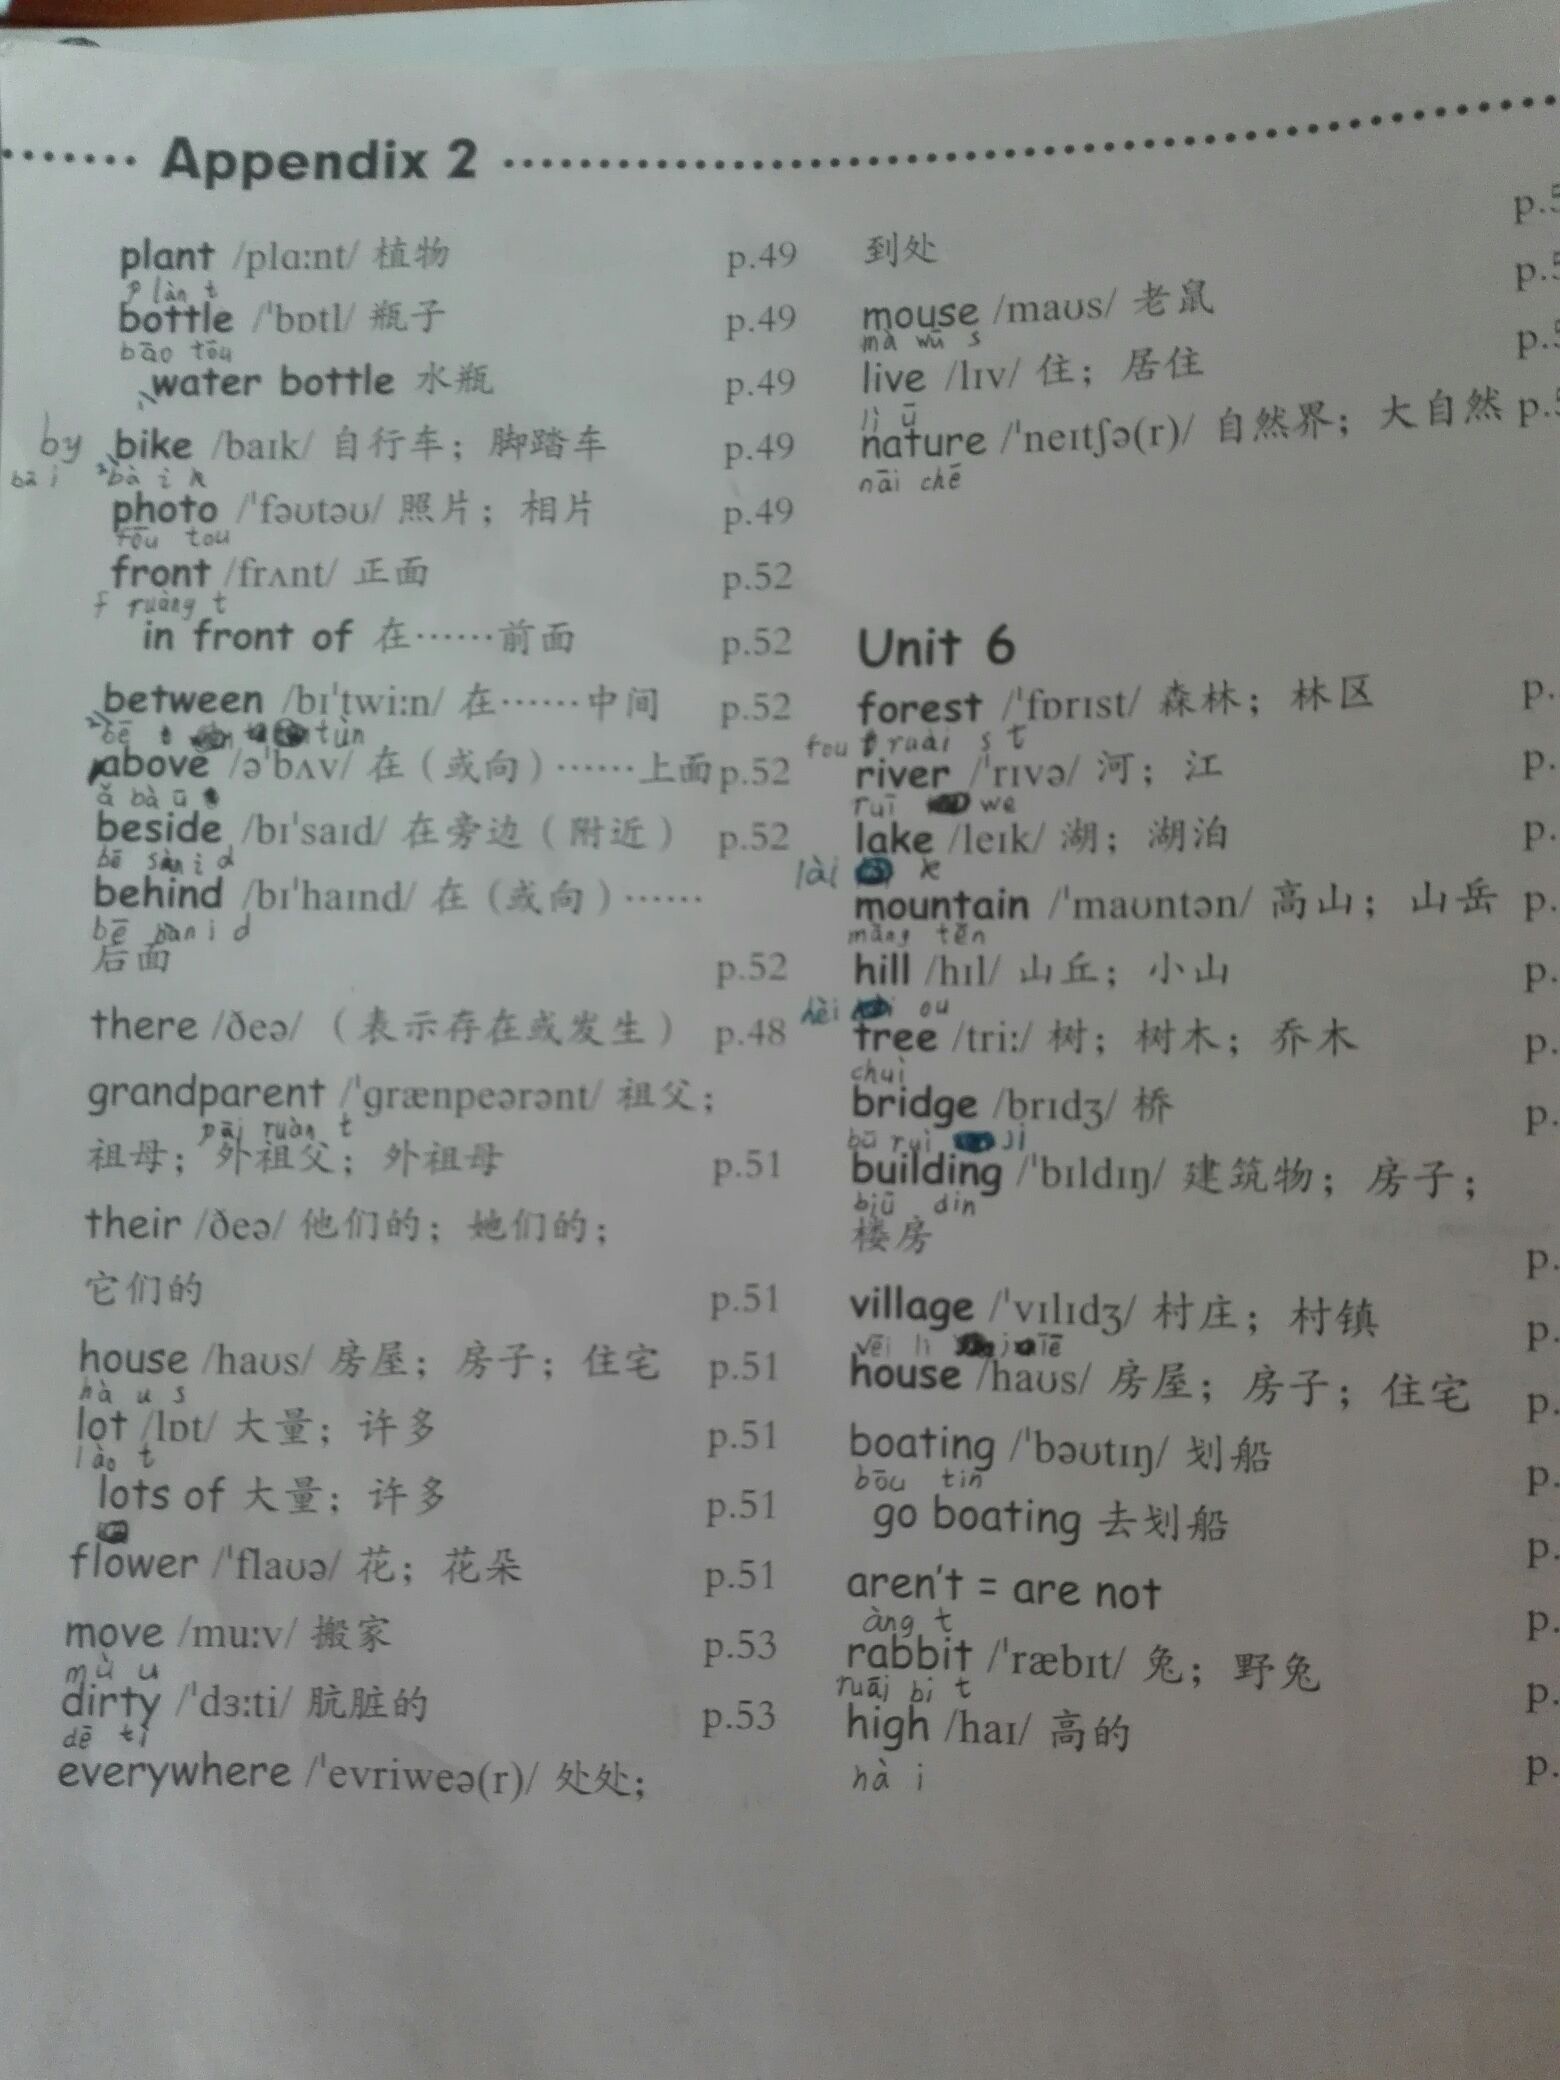 Appendix 2
plant /plɑːnt/ 植物 p.49
p làn t
bottle /ˈbɒtl/ 瓶子 p.49
bāo tōu
water bottle 水瓶 p.49
by bike /baɪk/ 自行车；脚踏车 p.49
bā i bà i k
photo /ˈfəʊtəʊ/ 照片；相片 p.49
fōu tou
front /frʌnt/ 正面 p.52
f ruàng t
in front of 在……前面 p.52
between /bɪˈtwiːn/ 在……中间 p.52
bē t tùn
above /əˈbʌv/ 在（或向）……上面 p.52
ǎ bà ū
beside /bɪˈsaɪd/ 在旁边（附近） p.52
bē sàn i d
behind /bɪˈhaɪnd/ 在（或向）……
bē han i d
后面 p.52
there /ðeə/ （表示存在或发生） p.48
grandparent /ˈɡrænpeərənt/ 祖父；
pāi ruàn t
祖母；外祖父；外祖母 p.51
their /ðeə/ 他们的；她们的；
它们的 p.51
house /haʊs/ 房屋；房子；住宅 p.51
hà u s
lot /lɒt/ 大量；许多 p.51
lào t
lots of 大量；许多 p.51
flower /ˈflaʊə/ 花；花朵 p.51
move /muːv/ 搬家 p.53
mù u
dirty /ˈdɜːti/ 肮脏的 p.53
dē tì
everywhere /ˈevriweə(r)/ 处处；
到处
mouse /maʊs/ 老鼠
mà wū s
live /lɪv/ 住；居住
lì ū
nature /ˈneɪtʃə(r)/ 自然界；大自然
nāi chē
Unit 6
forest /ˈfɒrɪst/ 森林；林区
fou ruài s t
river /ˈrɪvə/ 河；江
ruī we
lake /leɪk/ 湖；湖泊
lài k
mountain /ˈmaʊntən/ 高山；山岳
māng těn
hill /hɪl/ 山丘；小山
hèi ou
tree /triː/ 树；树木；乔木
chuì
bridge /brɪdʒ/ 桥
bū ruì jì
building /ˈbɪldɪŋ/ 建筑物；房子；
biū din
楼房
village /ˈvɪlɪdʒ/ 村庄；村镇
vēi lì
house /haʊs/ 房屋；房子；住宅
boating /ˈbəʊtɪŋ/ 划船
bōu tin
go boating 去划船
aren't = are not
àng t
rabbit /ˈræbɪt/ 兔；野兔
ruāi bi t
high /haɪ/ 高的
hà i